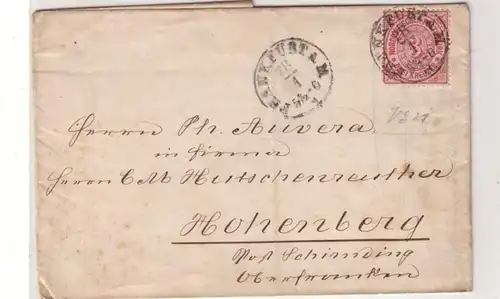 FRANKFURT A.M.
28
1
FRANKFURT A.M.
Herrn Ph. Auvera
in Firma
Herrn C M Hutschenreuther
Hohenberg
Post Schirnding
Oberfranken